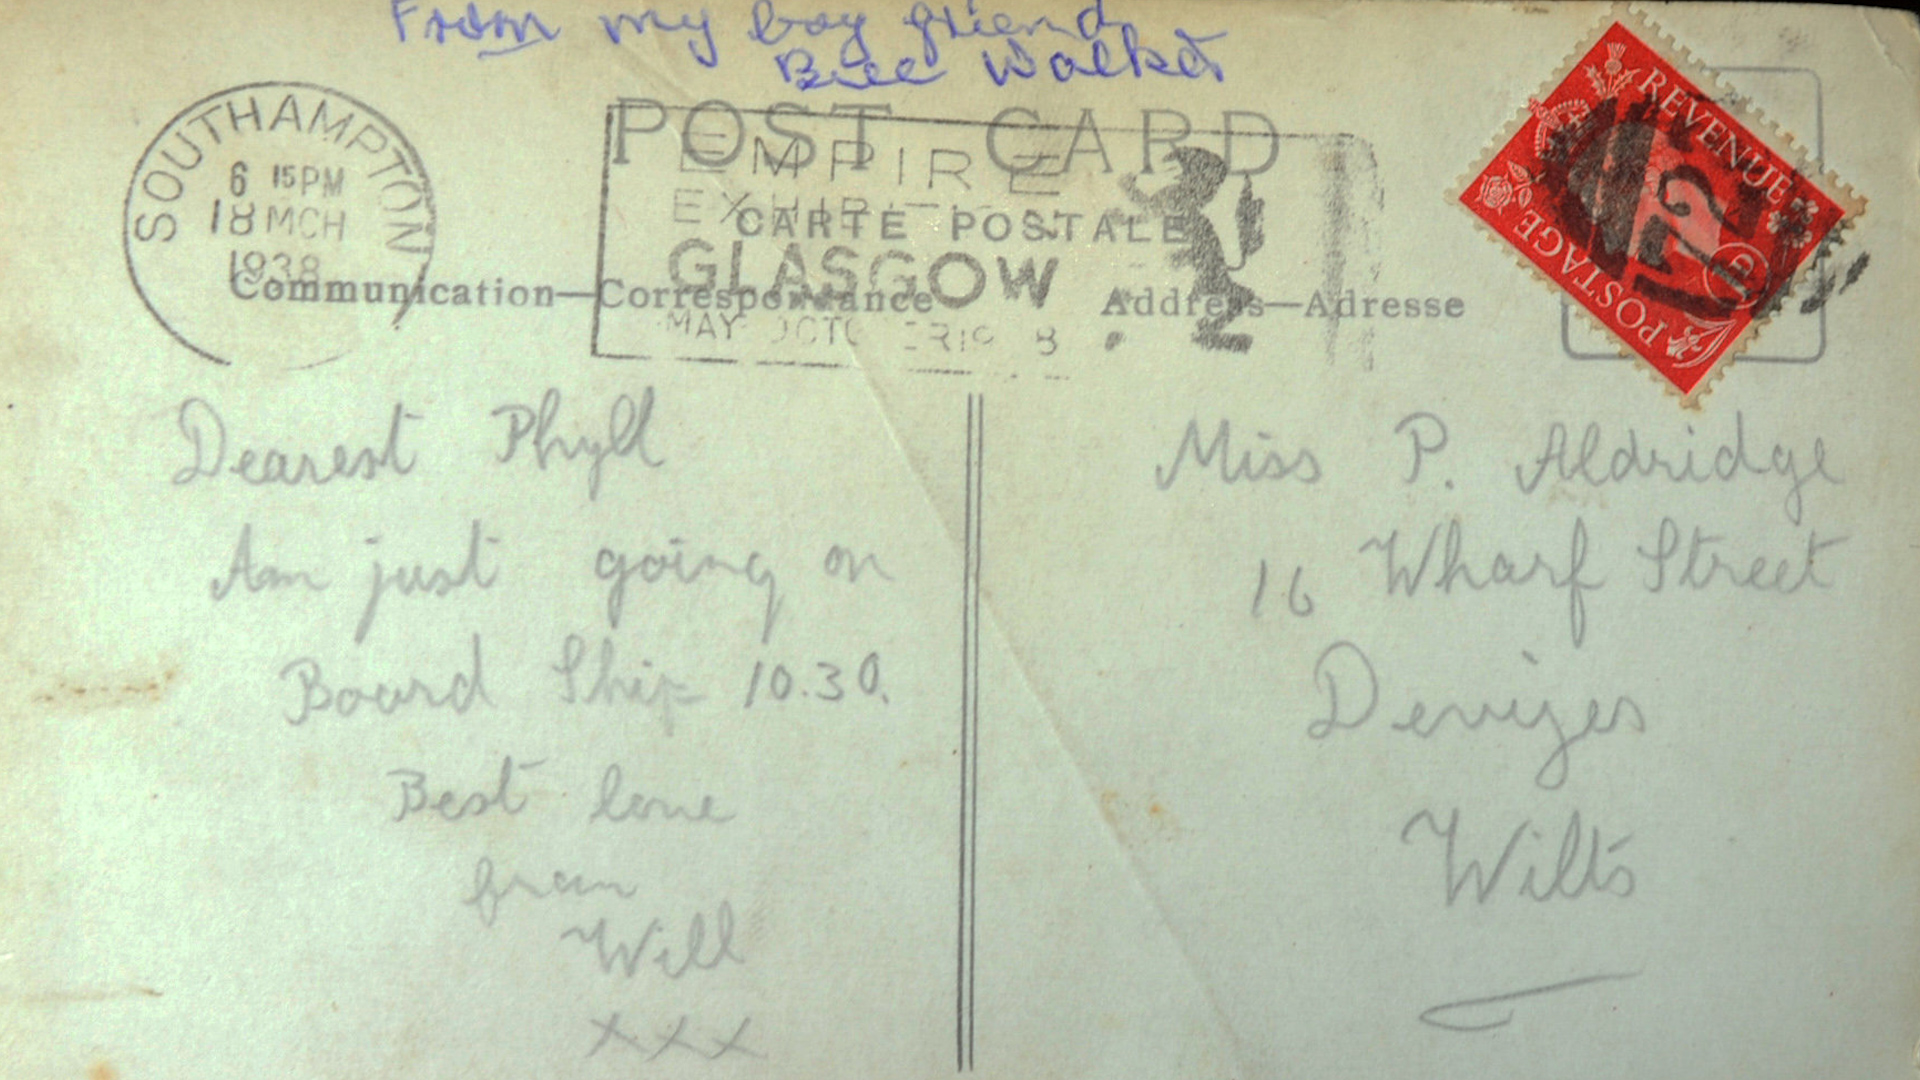 From my boy friend
Bill Walker
POST CARD
CARTE POSTALE
SOUTHAMPTON
6 15PM
18 MCH
1938
EMPIRE
GLASGOW
MAY
REVENUE
POSTAGE
1D
Communication—Correspondance
Address—Adresse
Dearest Phyll
Am just going on
Board Ship 10.30.
Best love
from
Will
xxx
Miss P. Aldridge
16 Wharf Street
Devizes
Wilts